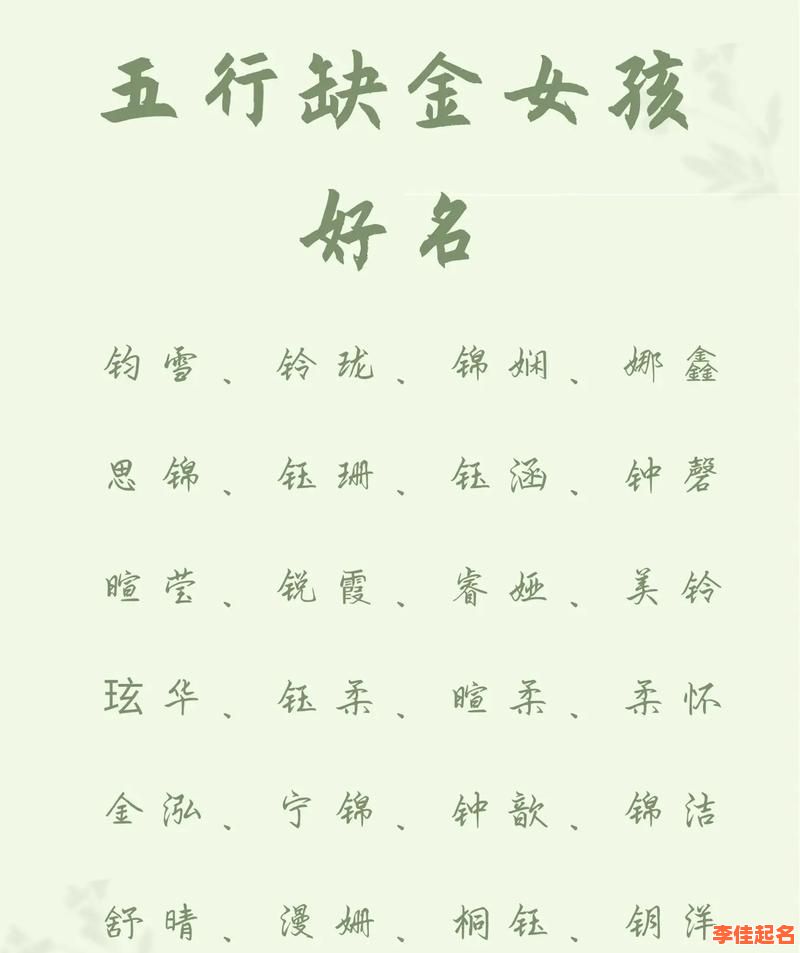 五行缺金女孩
好名
钧雪、铃珑、锦娴、娜鑫
思锦、钰珊、钰涵、钟磬
暄莹、锐霞、睿娅、美铃
玹华、钰柔、暄柔、柔怀
金泓、宁锦、钟歆、锦洁
舒晴、漫姗、桐钰、钥洋
李佳起名